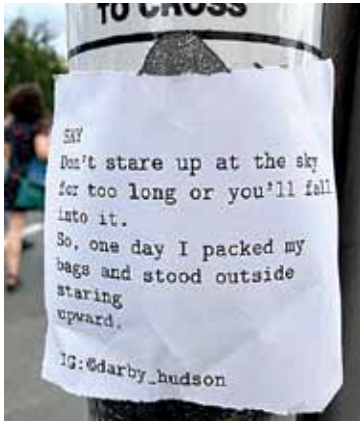 TO CROSS
SKY
Don't stare up at the sky
for too long or you'll fall
into it.
So, one day I packed my
bags and stood outside
staring
upward.
IG:@darby_hudson